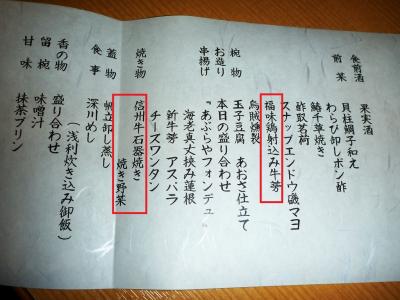 食前酒 果実酒
前菜 貝柱鯛子和え
わらび卸しポン酢
鰆千草焼き
酢取茗荷
スナップエンドウ磯マヨ
福味鶏射込み牛蒡
烏賊燻製
椀物 玉子豆腐 あおさ仕立て
お造り 本日の盛り合わせ
串揚げ 『あぶらやフォンデュ』
海老真丈挟み蓮根
新牛蒡 アスパラ
チーズワンタン
焼き物 信州牛石器焼き
焼き野菜
蓋物 帆立卸し蒸し
食事 深川めし
(浅利炊き込み御飯)
香の物 盛り合わせ
留椀 味噌汁
甘味 抹茶プリン